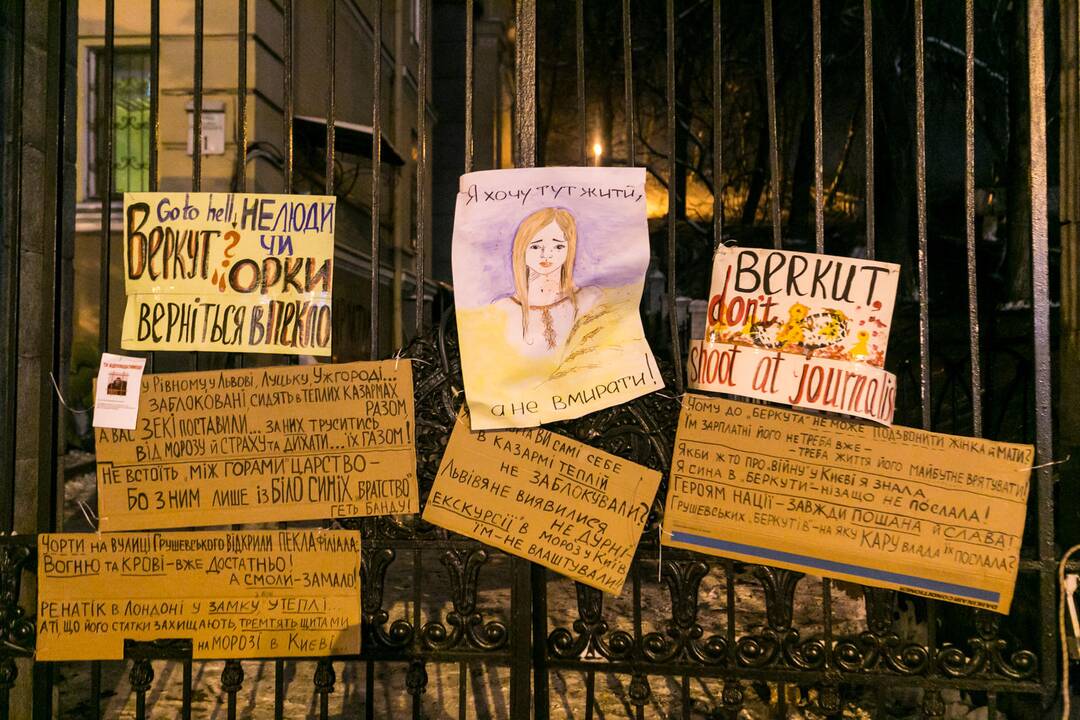 Go to hell, НЕЛЮДИ
БЕРКУТ? ЧИ
ОРКИ
ВЕРНІТЬСЯ В ПЕКЛО
Я ХОЧУ ТУТ ЖИТИ,
а не вмирати!
BERKUT,
don't
shoot at journalis
У РІВНОМУ ЛЬВОВІ, ЛУЦЬКУ, УЖГОРОДІ...
ЗАБЛОКОВАНІ СИДЯТЬ В ТЕПЛИХ КАЗАРМАХ
РАЗОМ,
А ВАС ЗЕКІ ПОСТАВИЛИ... ЗА НИХ ТРУСИТИСЬ
ВІД МОРОЗУ Й СТРАХУ ТА ДИХАТИ... ЇХ ГАЗОМ!
НЕ ВСТОЇТЬ „МІЖ ГОРАМИ" ЦАРСТВО –
БО З НИМ ЛИШЕ ІЗ БІЛО СИНІХ БРАТСТВО
ГЕТЬ БАНДУ!
ВИ САМІ СЕБЕ
В КАЗАРМІ ТЕПЛІЙ
НЕ ЗАБЛОКУВАЛИ?
ЛЬВІВЯНЕ ВИЯВИЛИСЯ
НЕ ДУРНІ-
ЕКСКУРСІЇ В МОРОЗУ КИЇВ
ЇМ-НЕ ВЛАШТУВАЛИ!
ЧОМУ ДО „БЕРКУТА" НЕ МОЖЕ ПОДЗВОНИТИ ЖІНКА Й МАТИ?
ЇМ ЗАРПЛАТНІ ЙОГО НЕ ТРЕБА ВЖЕ –
– ТРЕБА ЖИТТЯ ЙОГО МАЙБУТНЄ ВРЯТУВАТИ!
ЯКБИ Ж ТО ПРО „ВІЙНУ" У КИЄВІ Я ЗНАЛА
Я СИНА В „БЕРКУТИ" – НІЗАЩО НЕ ПОСЛАЛА!
ГЕРОЯМ НАЦІЇ – ЗАВЖДИ ПОШАНА Й СЛАВА!
ГРУШЕВСЬКИХ „БЕРКУТІВ" – НА ЯКУ КАРУ ВЛАДА ЇХ ПОСЛАЛА?
ЧОРТИ НА ВУЛИЦІ ГРУШЕВСЬКОГО ВІДКРИЛИ ПЕКЛА ФІЛІАЛ.
ВОГНЮ ТА КРОВІ – ВЖЕ ДОСТАТНЬО!
А СМОЛИ – ЗАМАЛО!
РЕНАТІК В ЛОНДОНІ У ЗАМКУ УТЕПЛІ
А ТІ, ЩО ЙОГО СТАТКИ ЗАХИЩАЮТЬ, ТРЕМТЯТЬ ЩИТАМИ
НА МОРОЗІ В КИЄВІ